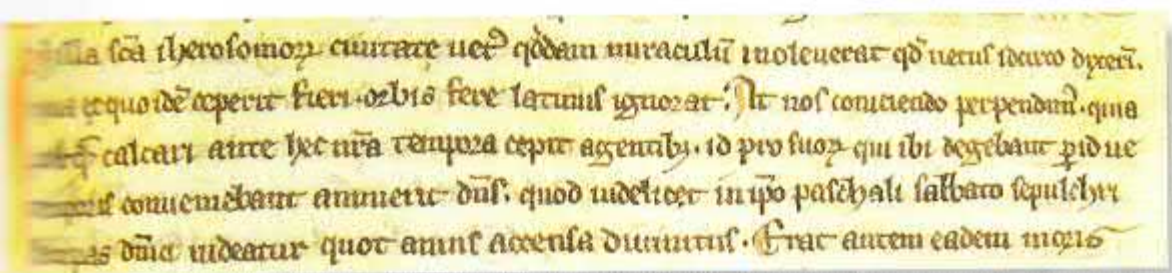 illa sc̄a iherosomoꝝ ciuitate uet᷒ qđdam miraculū inoleuerat qđ uetus idcirco dixerī.
ex quo idē ceperit fieri. orbis fere latinus ignorat. At nos coniciendo perpendim᷒. quia
calcari ante hec nr̄a tempora cepit a gentibꝫ. id pro suoꝝ qui ibi degebant ꝑ id ue
conueniebant annuerit dn̄s. quod uidelicet in ip̄o paschali sabbato sepulchri
dn̄ici uideatur quot annis accensa diuinitus. Erat autem eadem moris